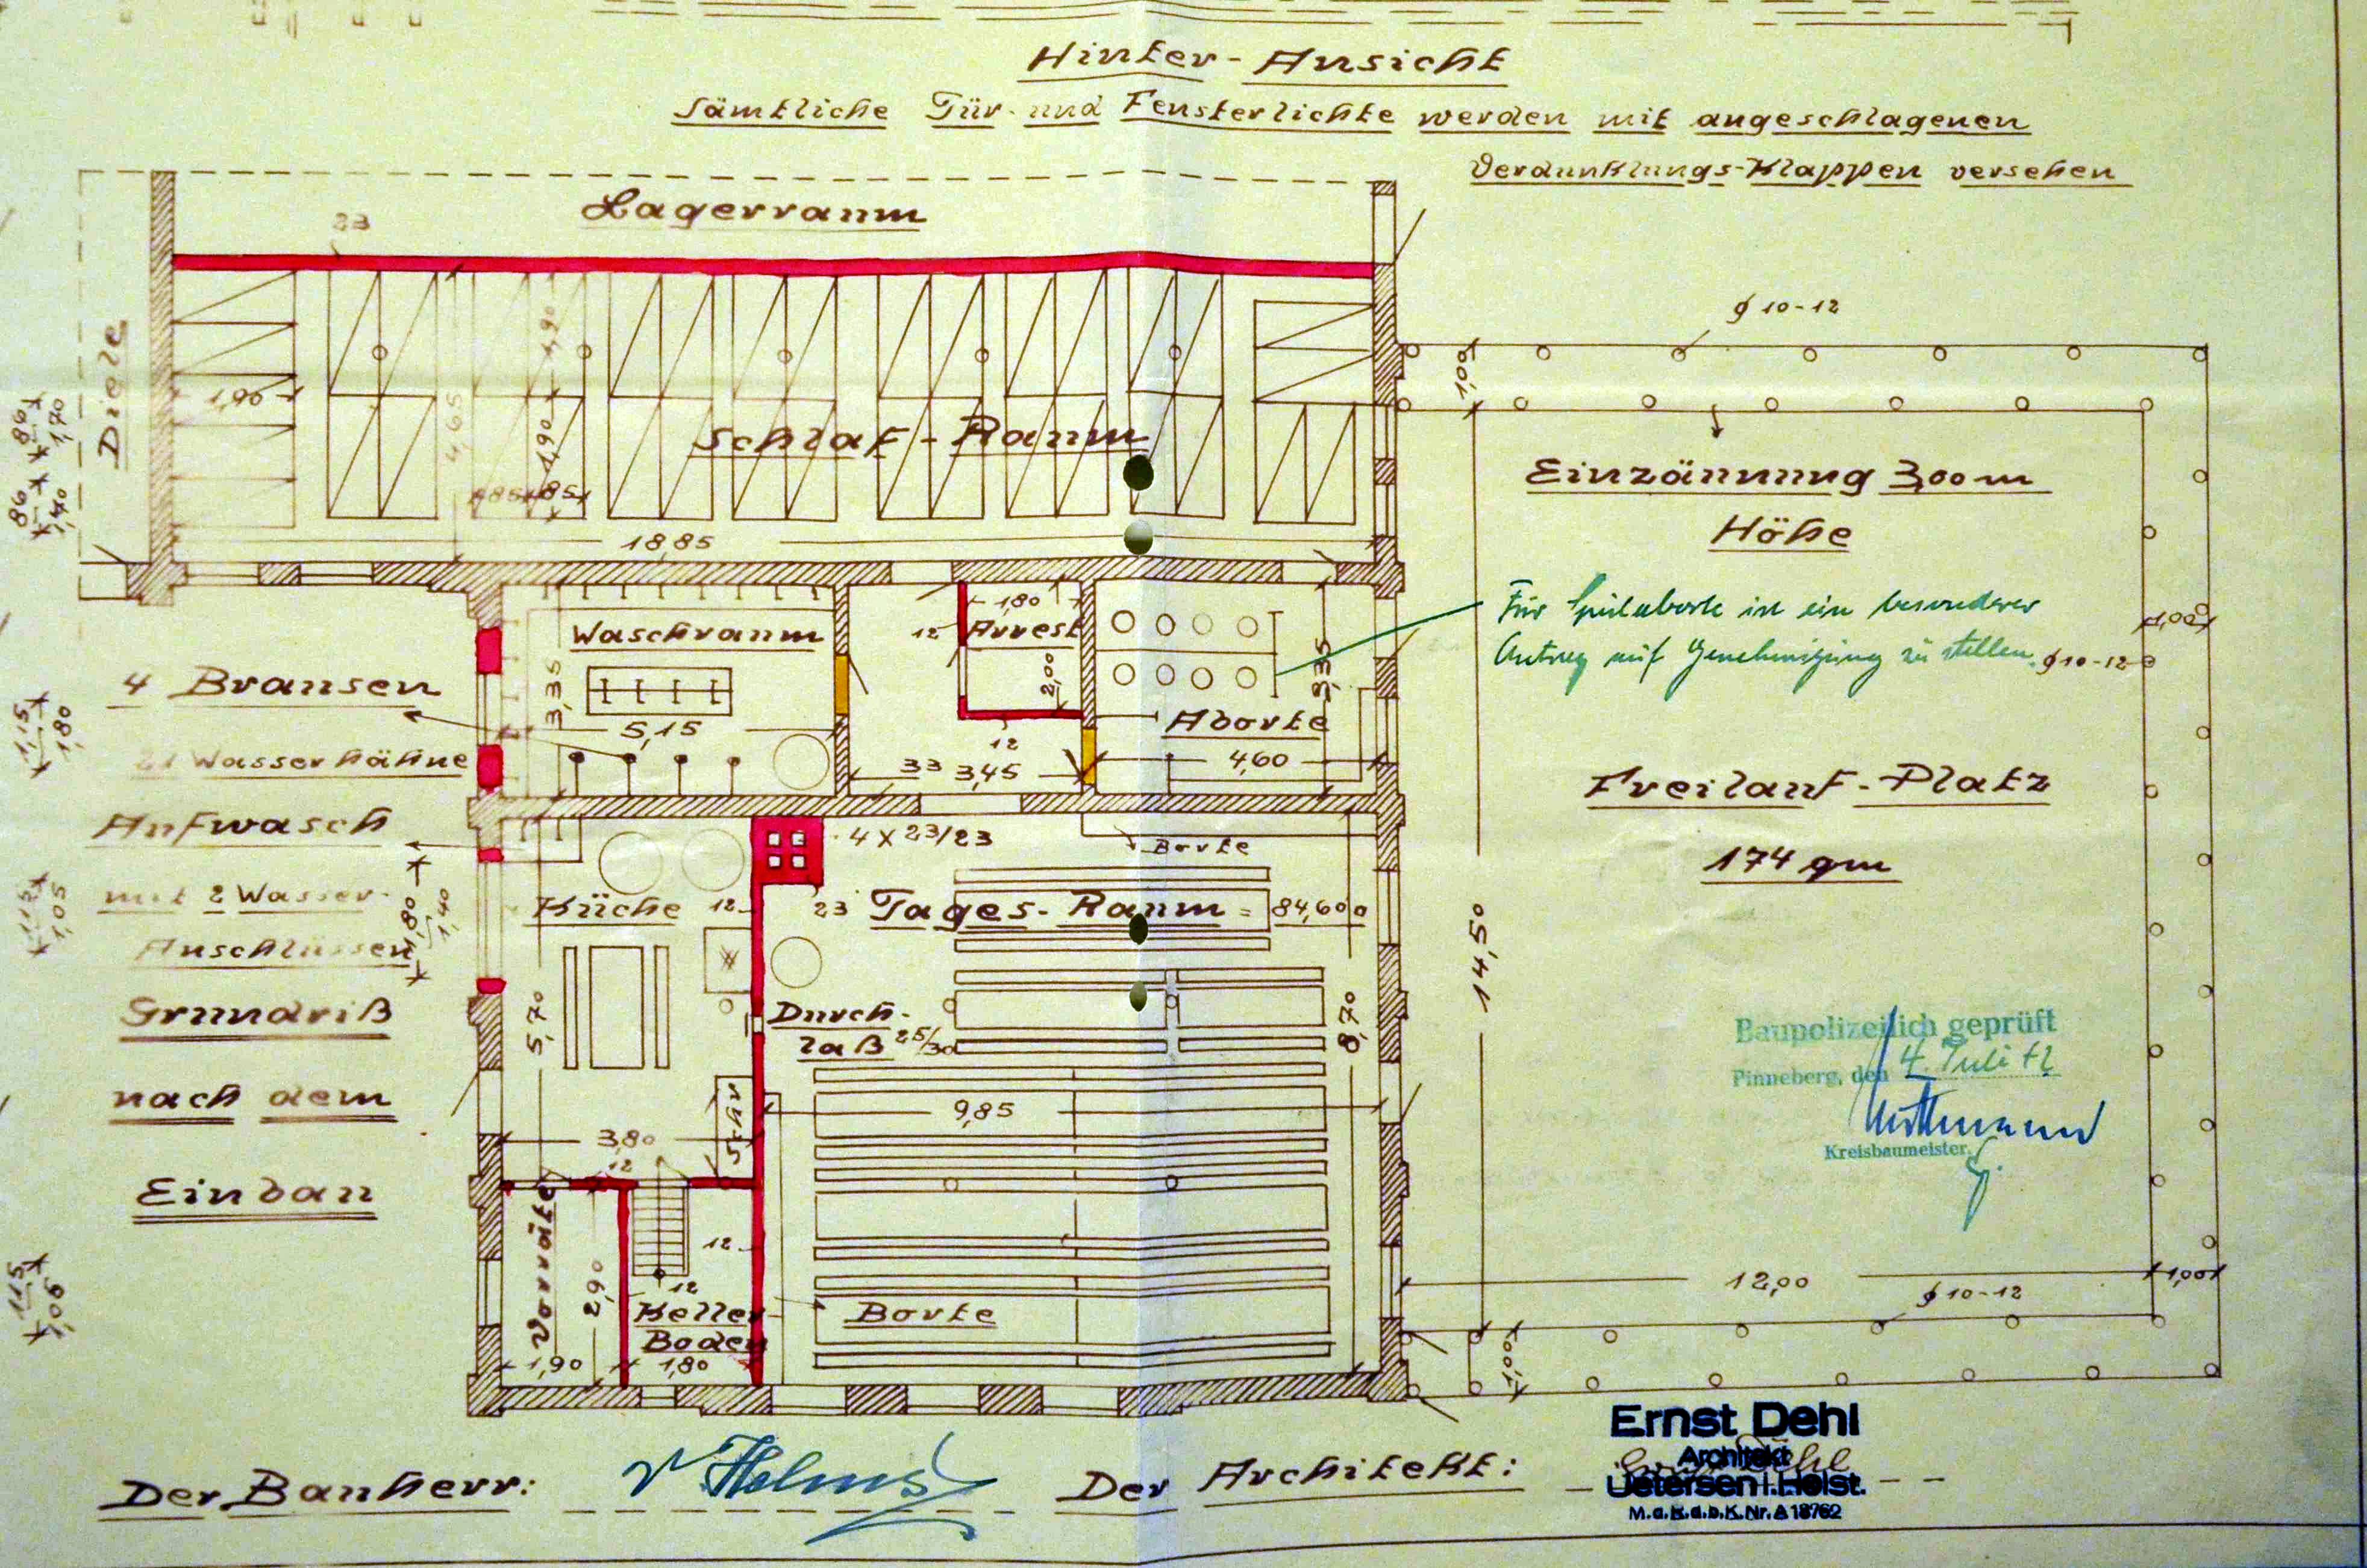 Hinter-Ansicht
Sämtliche Tür- und Fensterlichte werden mit angeschlagenen
Verdunklungs-Klappen versehen
Lagerraum
23
Diele
1,90
4,65
1,90
1,90
85
85
Schlaf-Raum
18,85
86
1,70
86
1,40
ϕ 10-12
1,00
Einzäunung 3,00 m
Höhe
Für Spülaborte ist ein besonderer
Antrag auf Genehmigung zu stellen.
ϕ 10-12
1,00
Waschraum
3,35
5,15
12
1,80
Arrest
2,00
12
33
3,45
3,35
Aborte
4,60
4 Brausen
21 Wasserhähne
1,15
1,80
Aufwasch
mit 2 Wasser-
Anschlüssen
1,80
1,40
1,15
1,05
Freilauf-Platz
174 qm
4 X 23/23
Borte
Küche
12
23
Tages-Raum = 84,600
14,50
5,70
Durch-
laß 25/30
8,70
Grundriß
nach dem
Einbau
9,85
3,80
Schr
12
Baupolizeilich geprüft
Pinneberg, den 4. Juli 42
Kreisbaumeister.
Vorräte
2,90
12
12
Keller
Boden
1,90
1,80
Borte
1,15
1,05
12,00
1,00
ϕ 10-12
1,00
Der Bauherr: Helms
Der Architekt:
Ernst Dehl
Architekt
Uetersen i. Holst.
M.d.R.d.b.K.Nr. A 18762